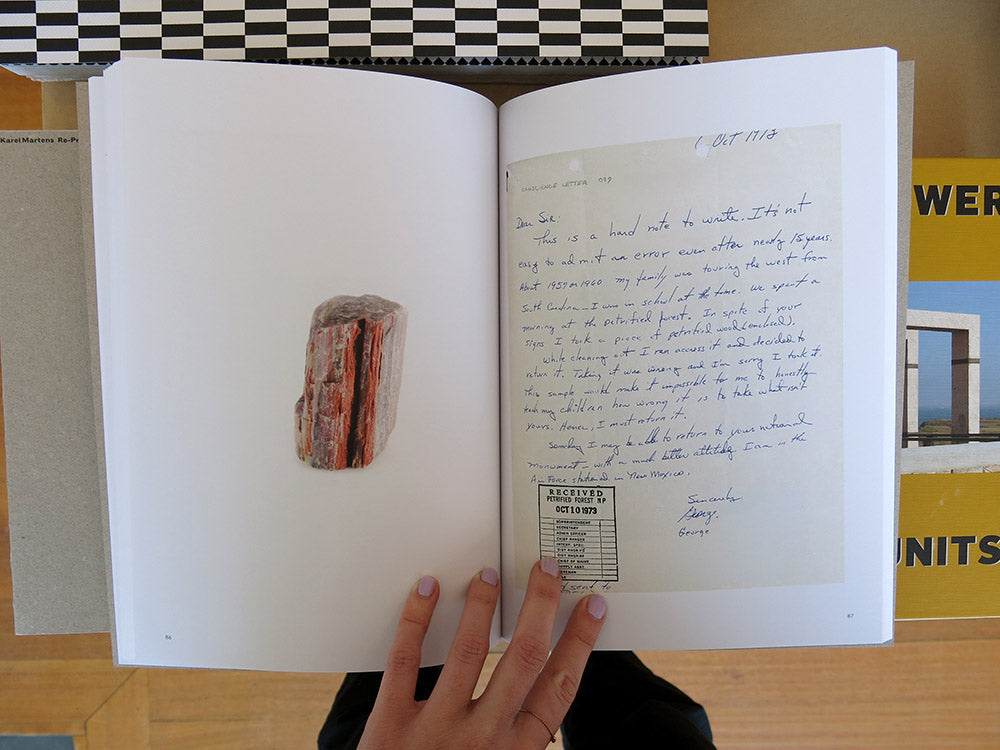 Karel Martens Re-Pr
WER
UNITS
86
87
Oct 1973
CONSCIENCE LETTER 099
Dear Sir:
This is a hard note to write. It's not
easy to admit an error even after nearly 15 years.
About 1959 or 1960 my family was touring the west from
South Carolina - I was in school at the time. We spent a
morning at the petrified forest. In spite of your
signs I took a piece of petrified wood (enclosed).
While cleaning out I ran across it and decided to
return it. Taking it was wrong and I'm sorry I took it.
This sample would make it impossible for me to honestly
teach my children how wrong it is to take what isn't
yours. Hence, I must return it.
Someday I may be able to return to your national
monument - with a much better attitude. I am in the
Air Force stationed in New Mexico.
Sincerely,
George
George
RECEIVED
PETRIFIED FOREST NP
OCT 10 1973
SUPERINTENDENT
SECRETARY
ADMIN OFFICER
CHIEF RANGER
INTERP. SPEC.
DIST RNGR
DIST RNGR
CHIEF OF MAINT.
SUPPLY ASST.
sent to